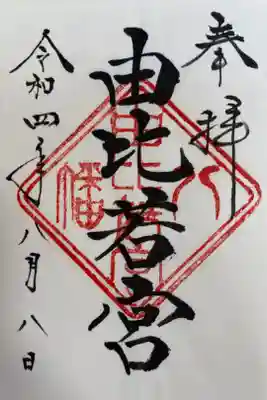 奉拝
由比若宮
令和四年八月八日